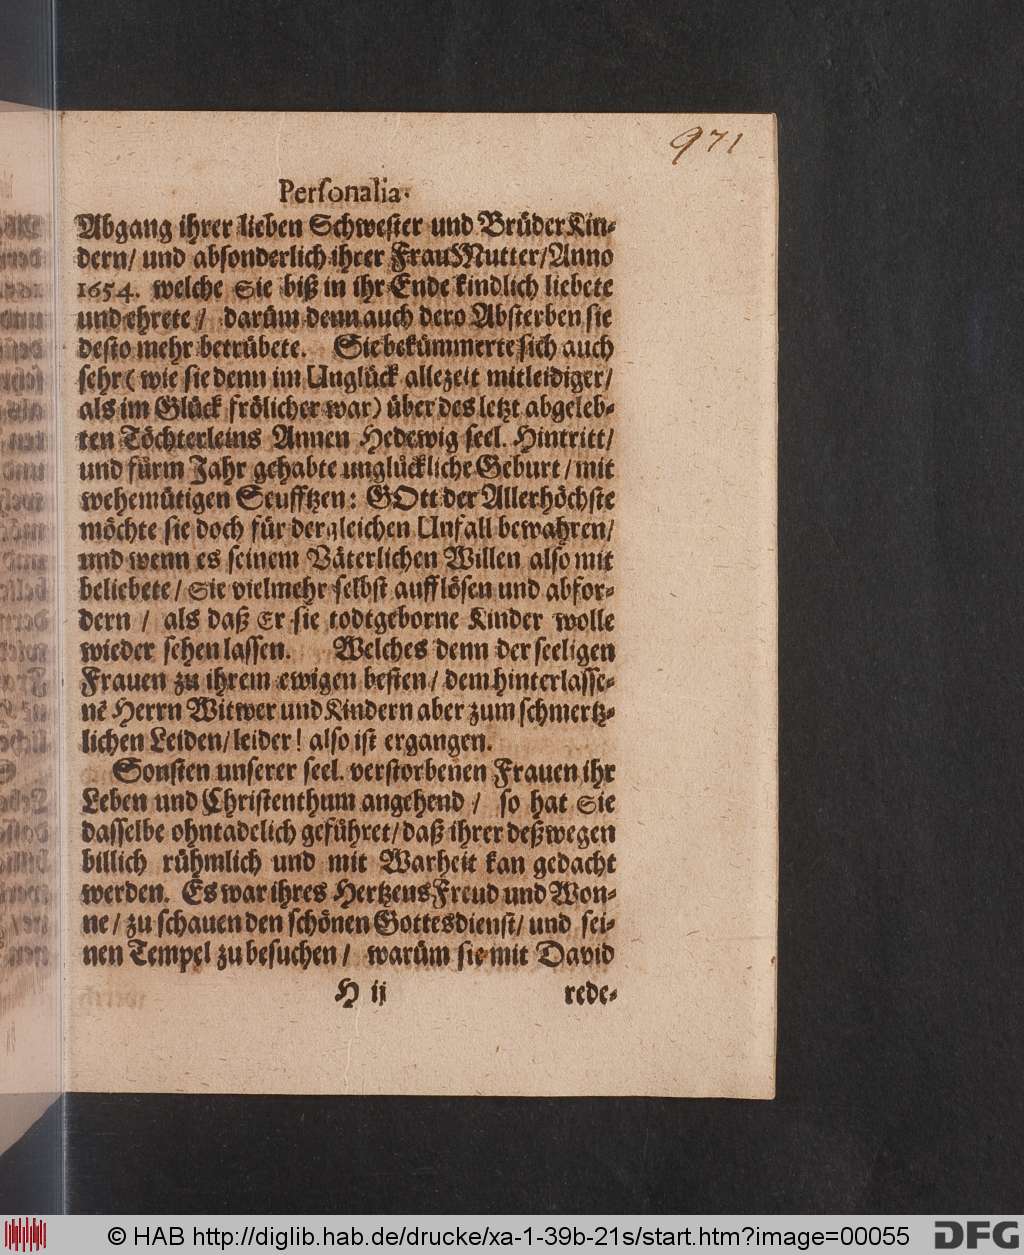 971
Perſonalia.
Abgang ihrer lieben Schweſter und Brüder Kin-
dern/ und abſonderlich ihrer Frau Mutter/Anno
1654. welche Sie biß in ihr Ende kindlich liebete
und ehrete/ darüm denn auch dero Abſterben ſie
deſto mehr betrübete. Sie bekümmerte ſich auch
ſehr ( wie ſie denn im Unglück allezeit mitleidiger/
als im Glück frölicher war) über des letzt abgeleb-
ten Töchterleins Annen Hedewig ſeel. Hintritt/
und fürm Jahr gehabte unglückliche Geburt/mit
wehemütigen Seufftzen: GOtt der Allerhöchſte
möchte ſie doch für dergleichen Unfall bewahren/
und wenn es ſeinem Väterlichen Willen alſo mit
beliebete/ Sie vielmehr ſelbſt aufflöſen und abfor-
dern / als daß Er ſie todtgeborne Kinder wolle
wieder ſehen laſſen. Welches denn der ſeeligen
Frauen zu ihrem ewigen beſten/ dem hinterlaſſe-
nē Herrn Witwer und Kindern aber zum ſchmertz-
lichen Leiden/leider! alſo iſt ergangen.
Sonſten unſerer ſeel. verſtorbenen Frauen ihr
Leben und Chriſtenthum angehend / ſo hat Sie
daſſelbe ohntadelich geführet/daß ihrer deßwegen
billich rühmlich und mit Warheit kan gedacht
werden. Es war ihres Hertzens Freud und Won-
ne/ zu ſchauen den ſchönen Gottesdienſt/ und ſei-
nen Tempel zu beſuchen/ warüm ſie mit David
H ij rede-
© HAB http://diglib.hab.de/drucke/xa-1-39b-21s/start.htm?image=00055 DFG